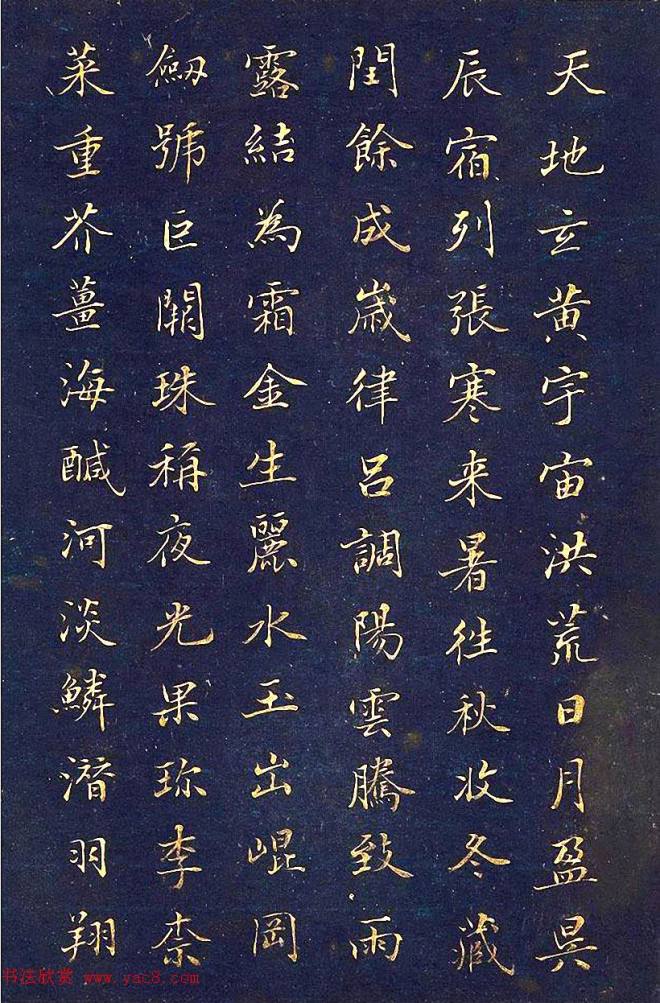 天地玄黃宇宙洪荒日月盈昃
辰宿列張寒来暑往秋收冬藏
閏餘成歲律呂調陽雲騰致雨
露結為霜金生麗水玉出崐岡
劔號巨闕珠稱夜光果珎李柰
菜重芥薑海醎河淡鱗潛羽翔
书法欣赏 www.yac8.com